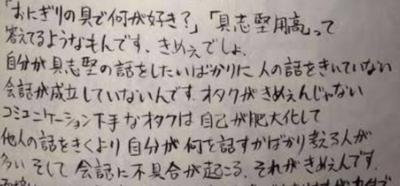 「おにぎりの具で何が好き?」「具志堅用高」って
答えてるようなもんです、きめぇでしょ。
自分が具志堅の話をしたいばかりに人の話をきいていない
会話が成立していないんです。オタクがきめぇんじゃない
コミュニケーション下手なオタクは自己が肥大化して
他人の話をきくより自分が何を話すかばかり考える人が
多いそして会話に不具合が起こる。それがきめぇんです。